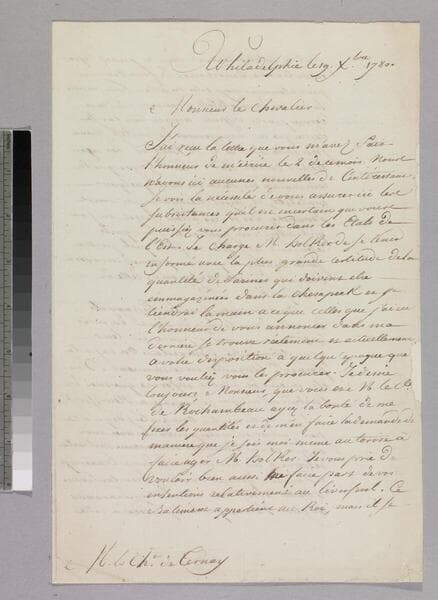 Philadelphie le 19 Xbre 1780.
Monsieur le Chevalier
J'ai reçu la lettre que vous m'avez fait
l'honneur de m'écrire le 2 de ce mois. Nous
n'avons ici aucunes nouvelles de
Je sens la nécessité de vous assurer ici les
subsistances qu'il est incertain que vous
puissiez vous procurer dans les Etats de
l'Est. Je charge M. holker de se tenir
informé avec la plus grande certitude de la
quantité de farines qui doivent être
emmagazinées dans la Chesapeak et je
tiendrai la main à ce que celles que j'ai eu
l'honneur de vous annoncer dans ma
dernière se trouvent réellement et actuellement
à votre disposition à quelque époque que
vous vouliez vous les procurer. Je désire
toujours, Monsieur, que vous et M. le Cte.
de Rochambeau ayez la bonté de me
fixer les quantités et de m'en faire la demande de
manière que je sois moi même autorisé à
faire agir M. holker. Je vous prie de
vouloir bien aussi me faire part de vos
intentions relativement au Ce
Batiment appartient au Roi, mais il se
M. le Chr. de Ternay